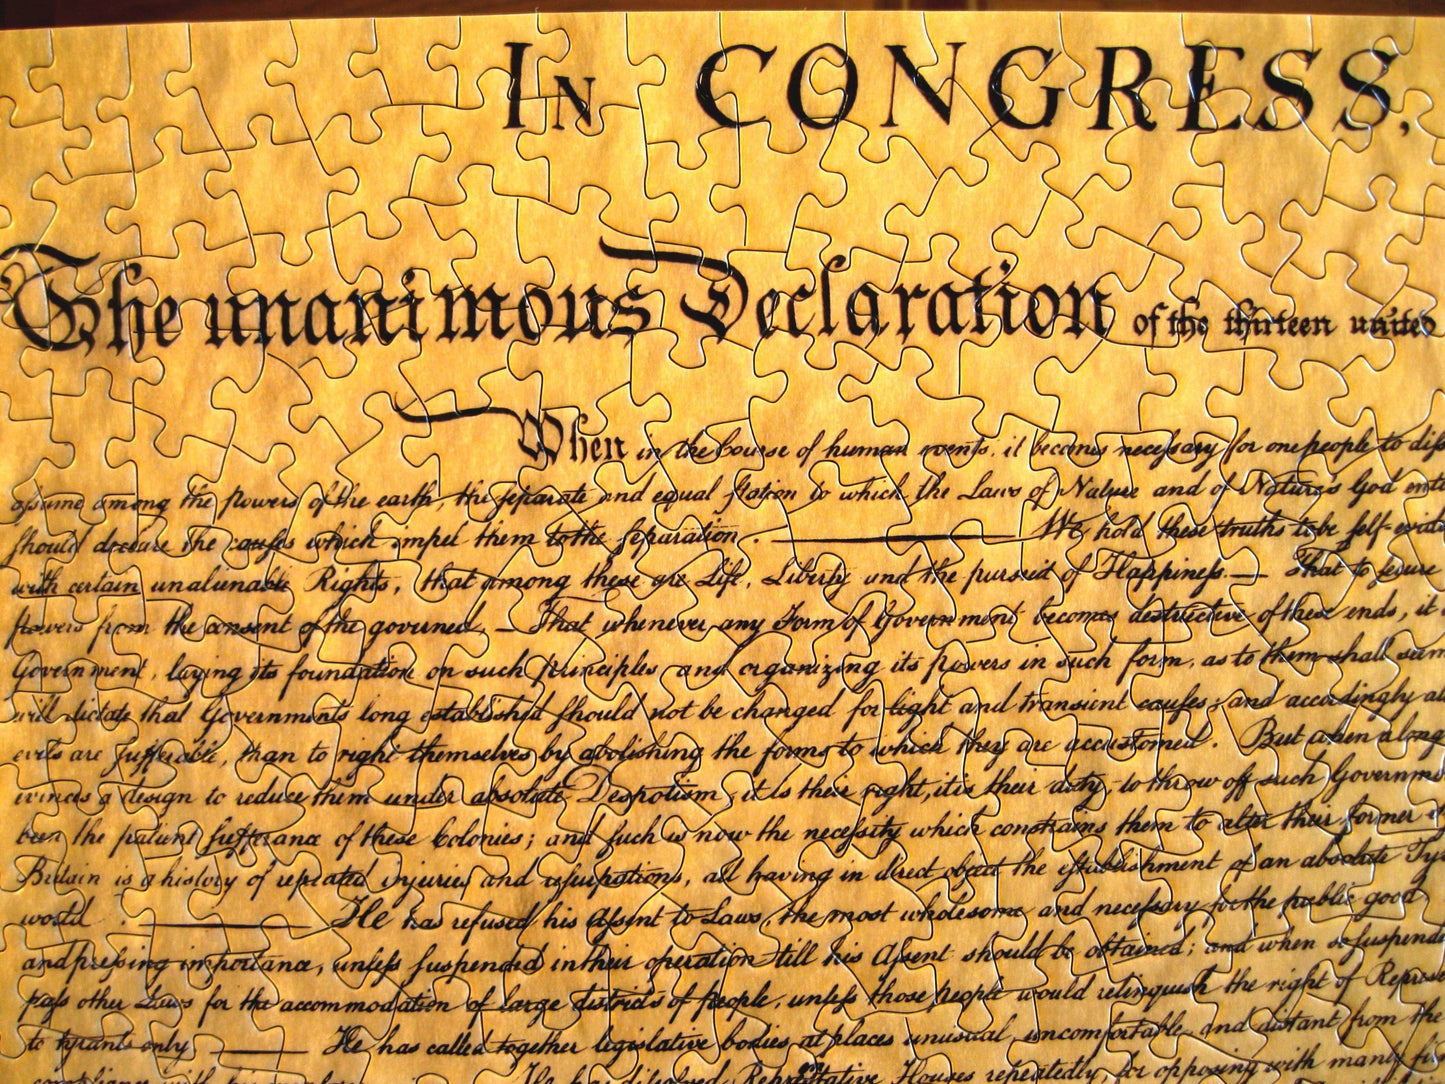 IN CONGRESS,
The unanimous Declaration of the thirteen united
When in the Course of human events, it becomes necessary for one people to diss
assume among the Powers of the earth, the separate and equal station to which the Laws of Nature and of Nature's God enti
should declare the causes which impel them to the separation. — We hold these truths to be self-evide
with certain unalienable Rights, that among these are Life, Liberty and the pursuit of Happiness. — That to secure
powers from the consent of the governed, — That whenever any Form of Government becomes destructive of these ends, it
Government, laying its foundation on such principles and organizing its powers in such form, as to them shall seem
will dictate that Governments long established should not be changed for light and transient causes; and accordingly al
evils are sufferable, than to right themselves by abolishing the forms to which they are accustomed. But when a long
evinces a design to reduce them under absolute Despotism, it is their right, it is their duty, to throw off such Governme
been the patient sufferance of these Colonies; and such is now the necessity which constrains them to alter their former
Britain is a history of repeated injuries and usurpations, all having in direct object the establishment of an absolute Ty
world. — He has refused his Assent to Laws, the most wholesome and necessary for the public good
and pressing importance, unless suspended in their operation till his Assent should be obtained; and when so suspende
pass other Laws for the accommodation of large districts of people, unless those people would relinquish the right of Represe
to tyrants only — He has called together legislative bodies at places unusual, uncomfortable, and distant from the
compliance with his He has dissolved Representative Houses repeatedly, for opposing with manly fi